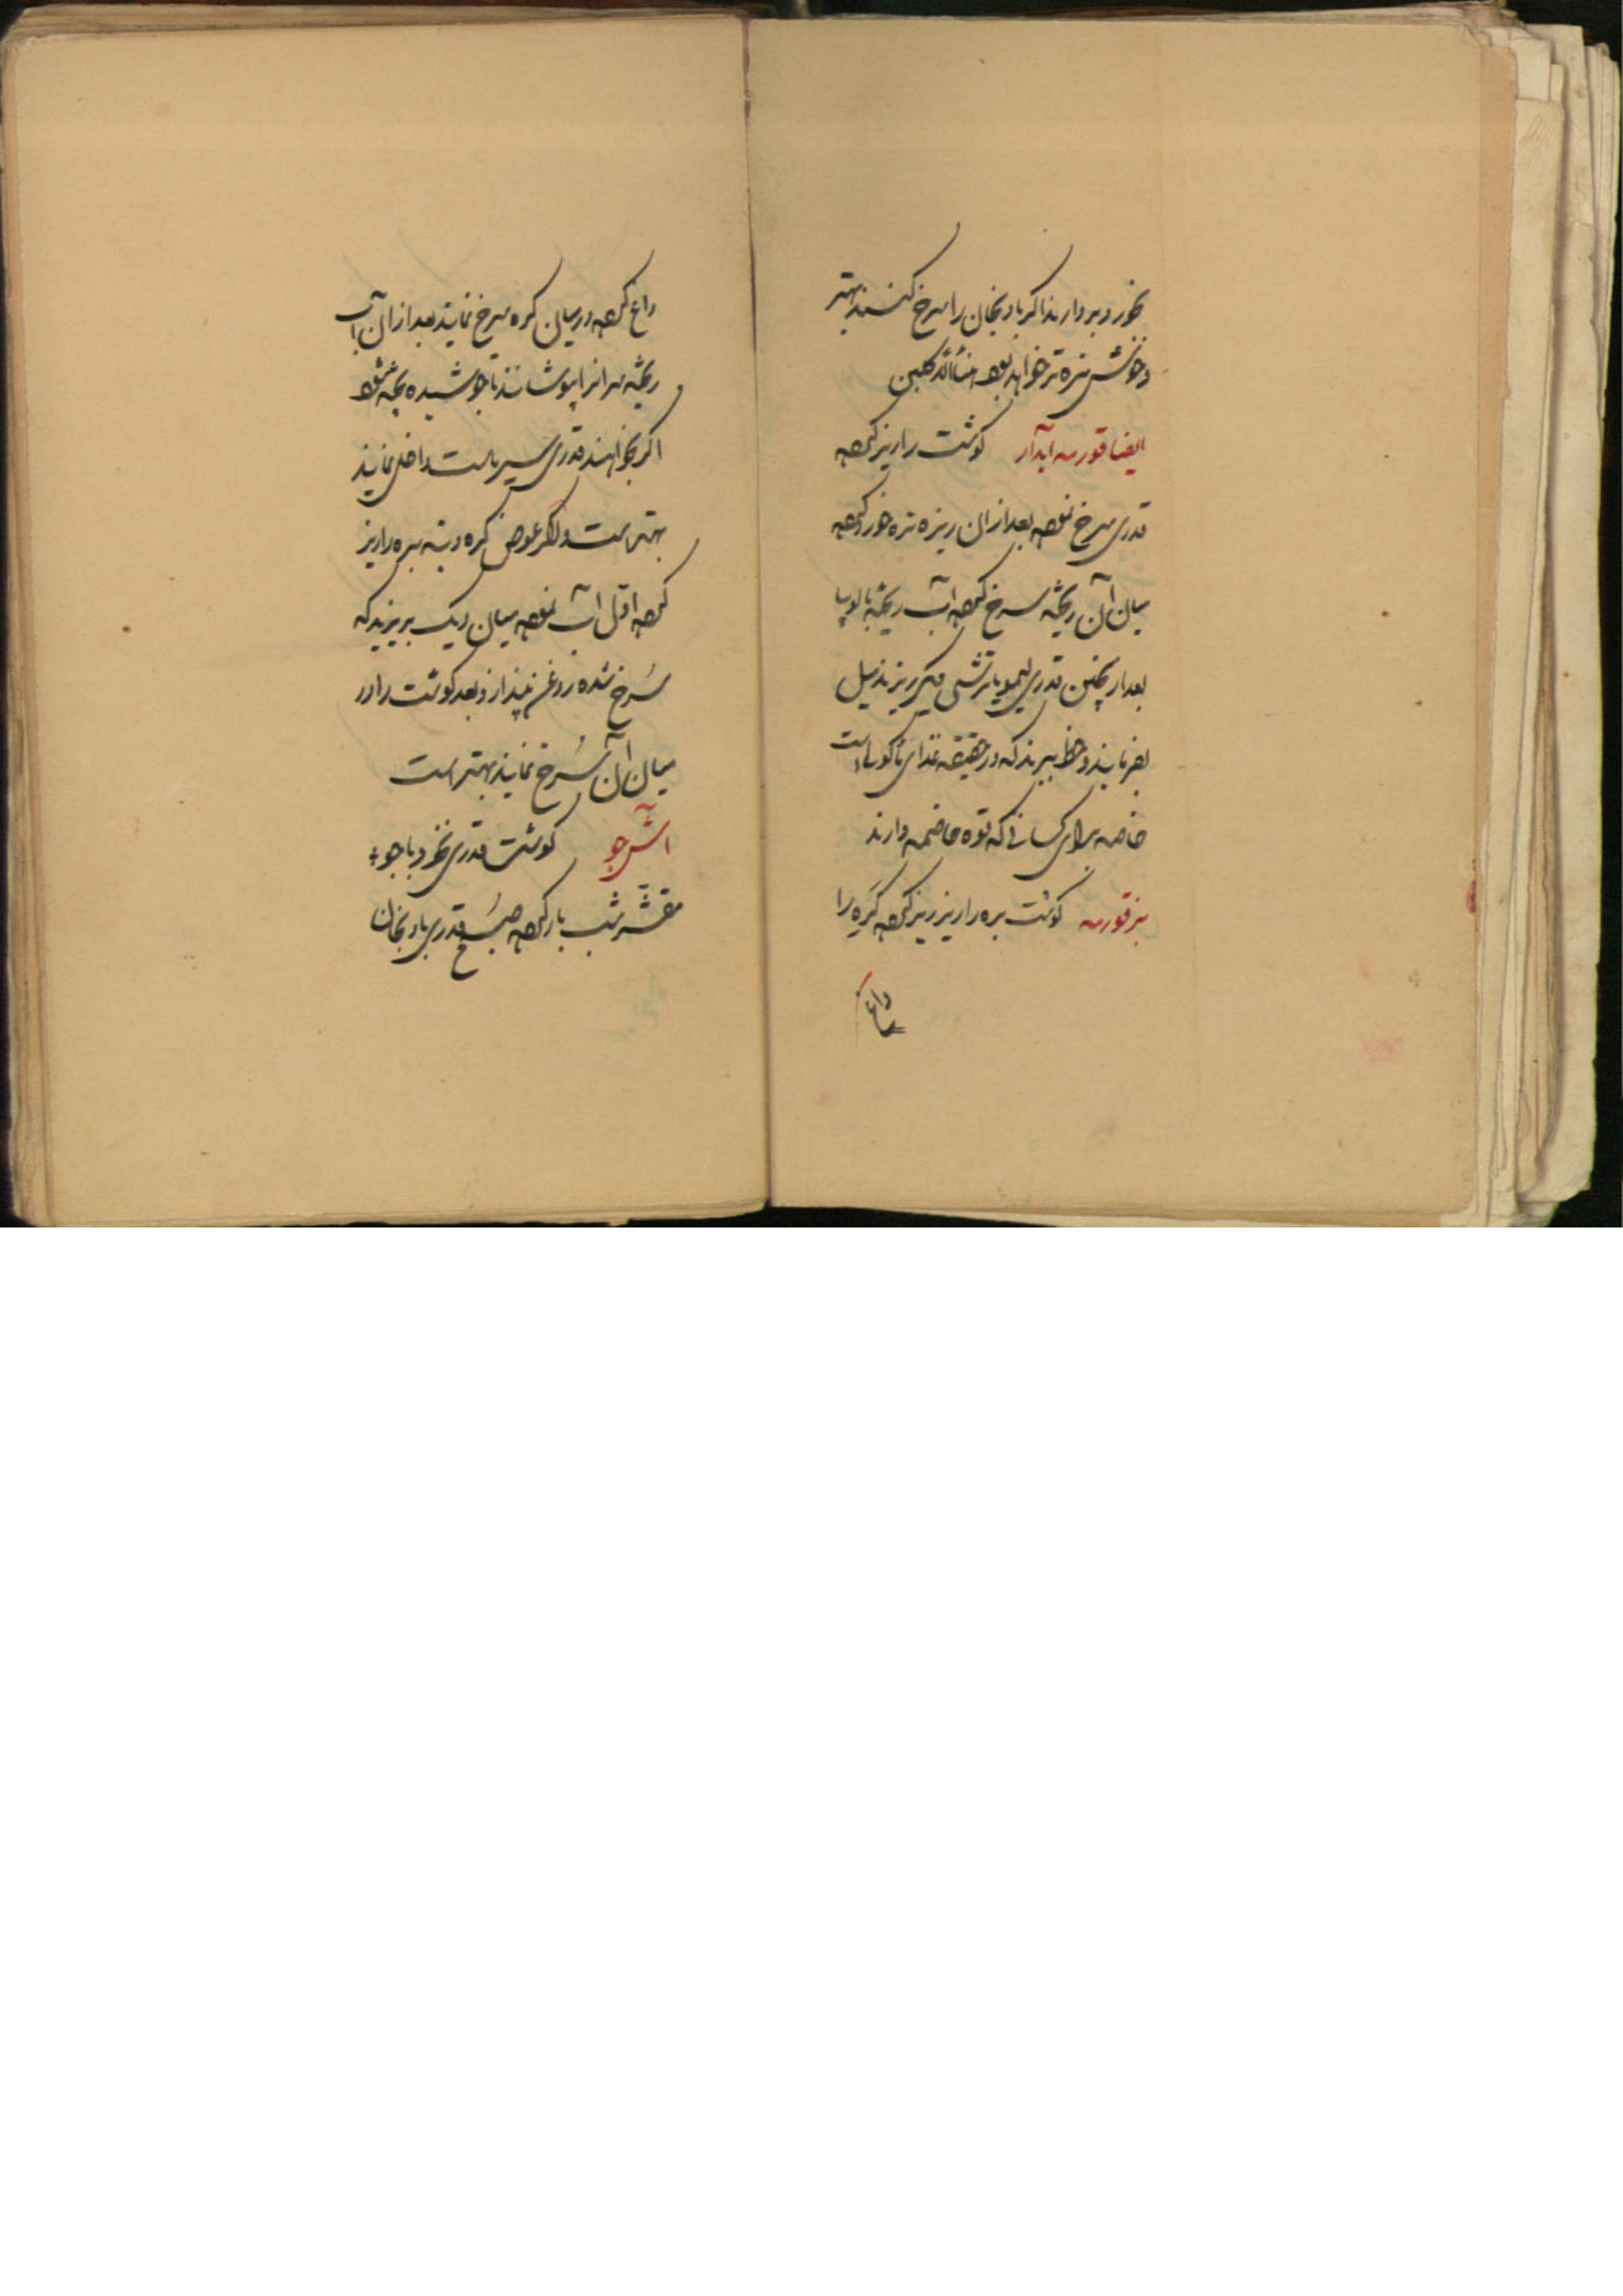 بخورد بردارند اگر بادنجان را سرخ کنند بهتر
و خوش مزه تر خواهد بود
ایضا قورمه آبدار گوشت را ریز کرده
قدری سرخ نموده بعد از آن ریزه تره خورد کرده
میان آن ریخته سرخ کرده آب ریخته با لوبیا
بعد از پختن قدری لیمو یا ترشی دیگر ریزند میل
بفرمایند و حظ ببرند که در حقیقه غذای ماکولی است
خاصه برای کسانی که قوه هاضمه دارند
بزقورمه گوشت بره را ریز ریز کرده کره را
داغ
داغ کرده در میان کره سرخ نمایند بعد از آن آب
ریخته سر آنرا بپوشانند تا جوشیده پخته شود
اگر بخواهند قدری سیر ماست داخل نمایند
بهتر است و اگر عوض کره دنبه بره را ریز
کرده اول آب نموده میان دیگ بریزند که
سرخ شده روغن بیندازد و بعد گوشت را در
میان آن سرخ نمایند بهتر است
آش جو گوشت قدری نخود با جو
مقشر شب بار کرده صبح قدری بادنجان